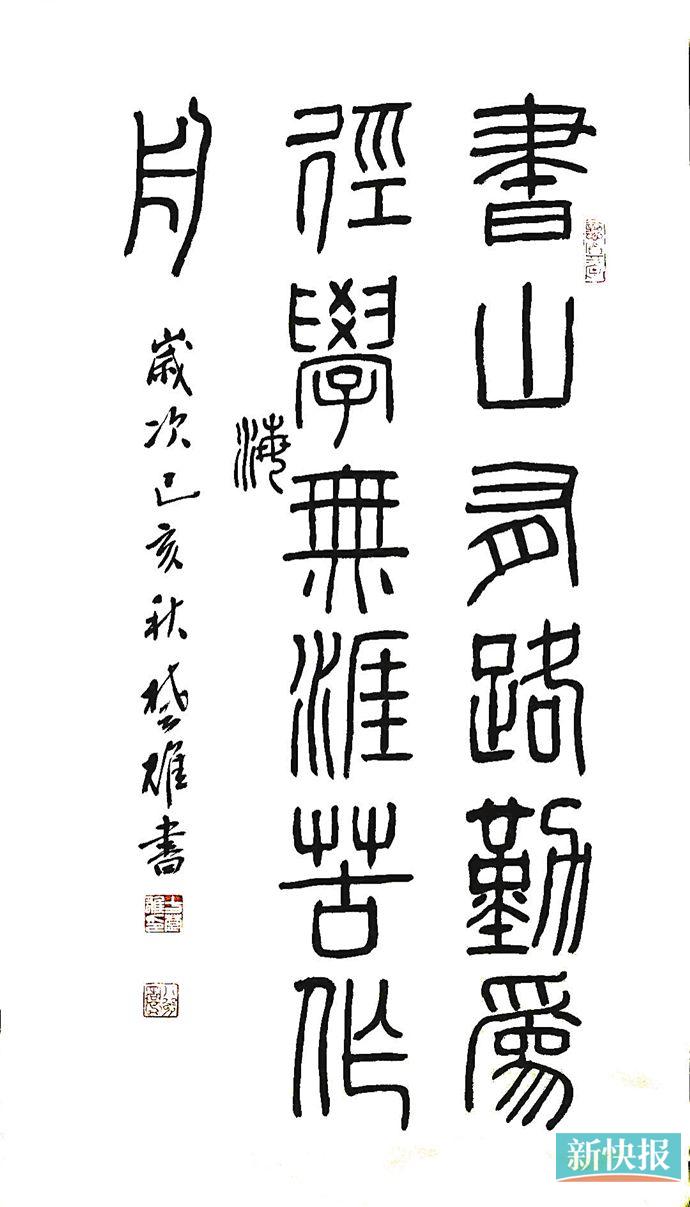 書山有路勤爲
徑學無涯苦作
海
舟
歲次己亥秋楚雄書
新快报